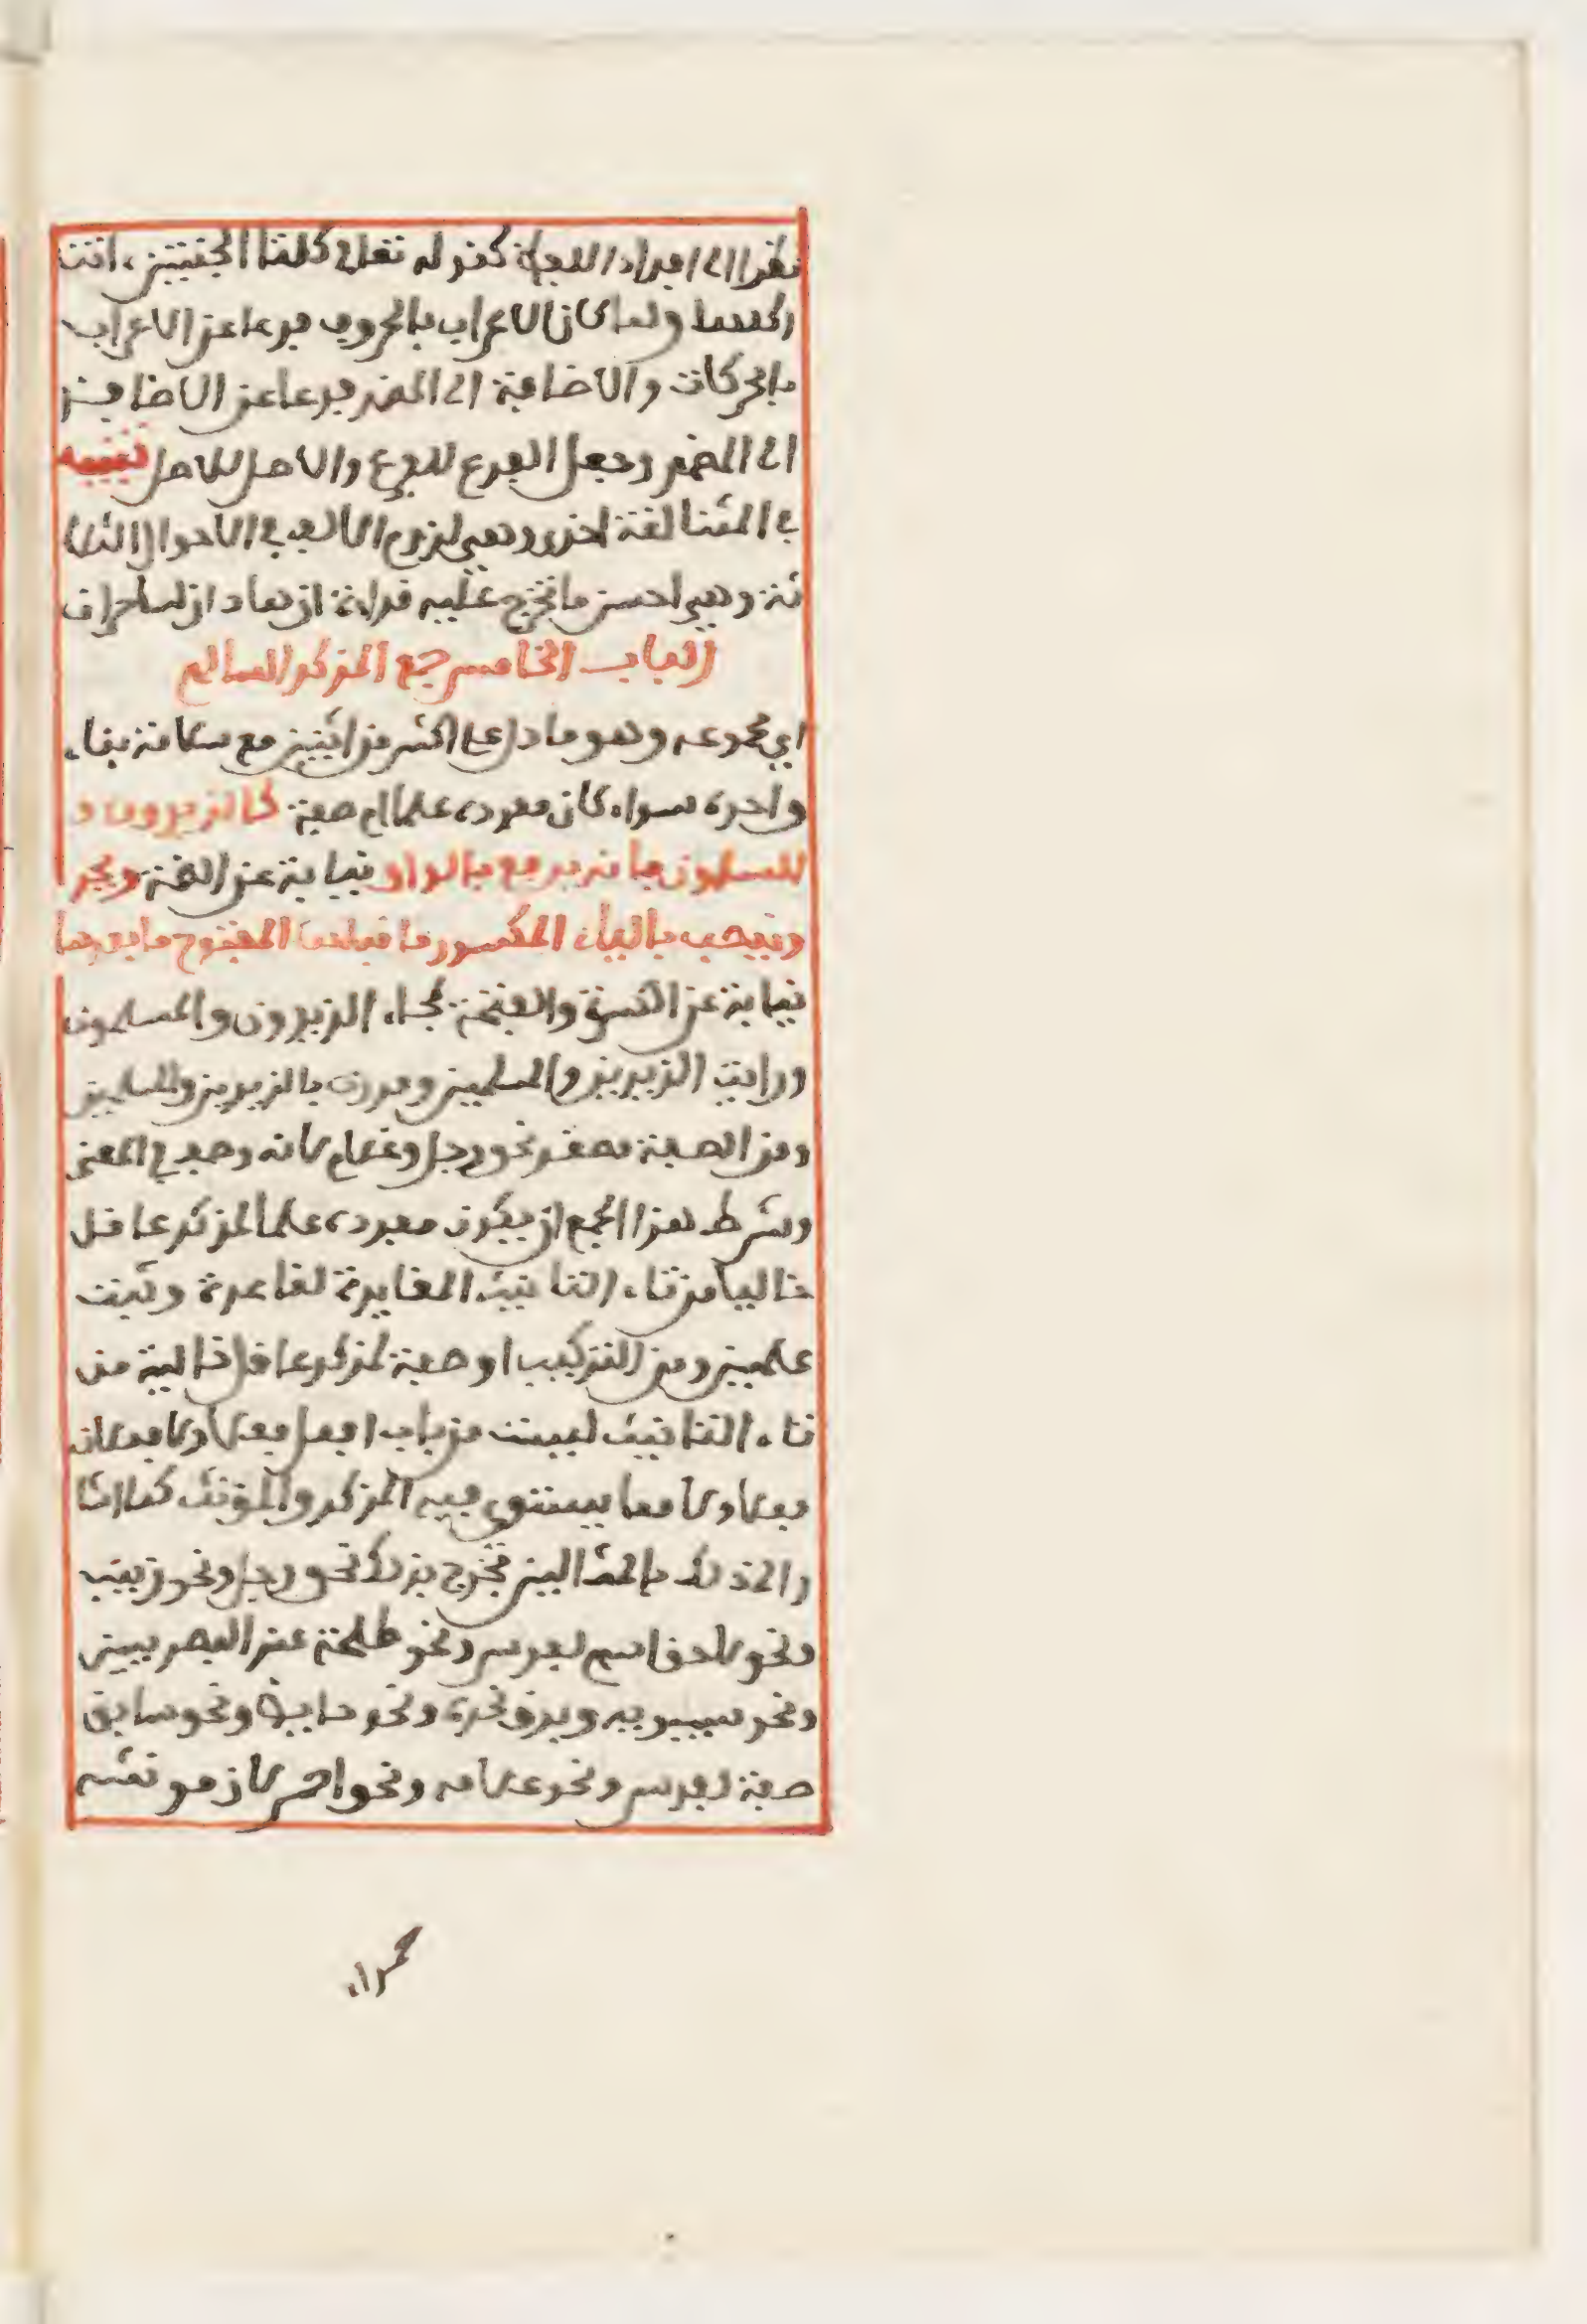 نظرا الى افراد اللفظ كقوله تعالى كلتا الجنتين ءاتت
اكلها ولما كان الاعراب بالحروف فرعا عن الاعراب
بالحركات والاضافة الى المضمر فرعا عن الاضافة
الى المضمر وجعل الفرع للفرع والاصل للاصل تنبيه
في المثنا لغة اخرى وهي لزوم الالف في الاحوال الثلا
ثة وهي احسن ما تخرج عليه قراءة ان هاذان لساحران
الباب الخامس جمع المذكر السالم
اي مجموعه وهو ما دل على اكثر من اثنين مع سلامة بناء
واحده سواء كان مفرده علما ام صفة كالزيدون و
المسلمون فانه يرفع بالواو نيابة عن الضمة ويجر
وينصب بالياء المكسور ما قبلها المفتوح ما بعدها
نيابة عن الكسرة والفتحة كجاء الزيدون والمسلمون
ورايت الزيدين والمسلمين ومررت بالزيدين والمسلمين
ومن الصفة مصغر نحو رجل وغلام لانه وصف في المعنى
وشرط هذا الجمع ان يكون مفرده علما لمذكر عاقل
خاليا من تاء التانيث المغايرة لقاعدة وثبت
علمين ومن التركيب او صفة لمذكر عاقل خالية من
تاء التانيث ليست من باب افعل فعلا ولا فعلان
فعلا ولا مما يستوي فيه المذكر والمؤنث كما اشا
ر الى ذلك بالمثالين فخرج بذلك نحو رجل ونحو زينب
ونحو لاحق اسم لفرس ونحو طلحة عند البصريين
ونحو سيبويه وبرق نحره ونحو حايض ونحو سابق
صفة لفرس ونحو علامه ونحو احمر لان مونثه
حمراء